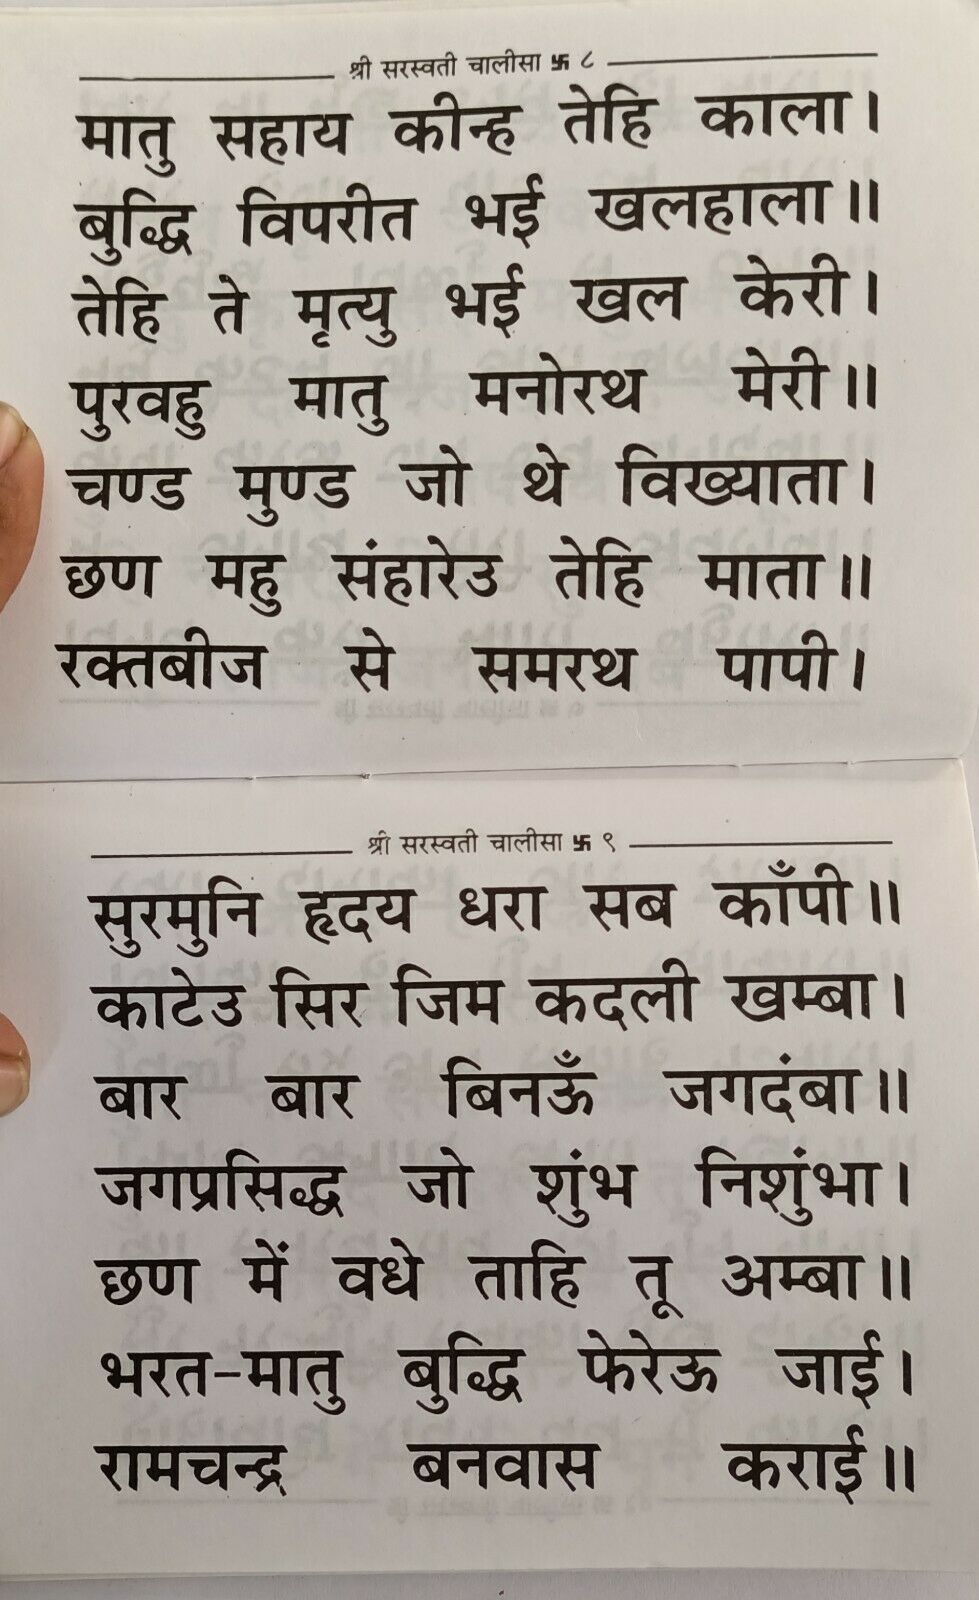 श्री सरस्वती चालीसा 卐 ८
मातु सहाय कीन्ह तेहि काला।
बुद्धि विपरीत भई खलहाला॥
तेहि ते मृत्यु भई खल केरी।
पुरवहु मातु मनोरथ मेरी॥
चण्ड मुण्ड जो थे विख्याता।
छण महु संहारेउ तेहि माता॥
रक्तबीज से समरथ पापी।
श्री सरस्वती चालीसा 卐 ९
सुरमुनि हृदय धरा सब काँपी॥
काटेउ सिर जिम कदली खम्बा।
बार बार बिनऊँ जगदंबा॥
जगप्रसिद्ध जो शुंभ निशुंभा।
छण में वधे ताहि तू अम्बा॥
भरत-मातु बुद्धि फेरेऊ जाई।
रामचन्द्र बनवास कराई॥